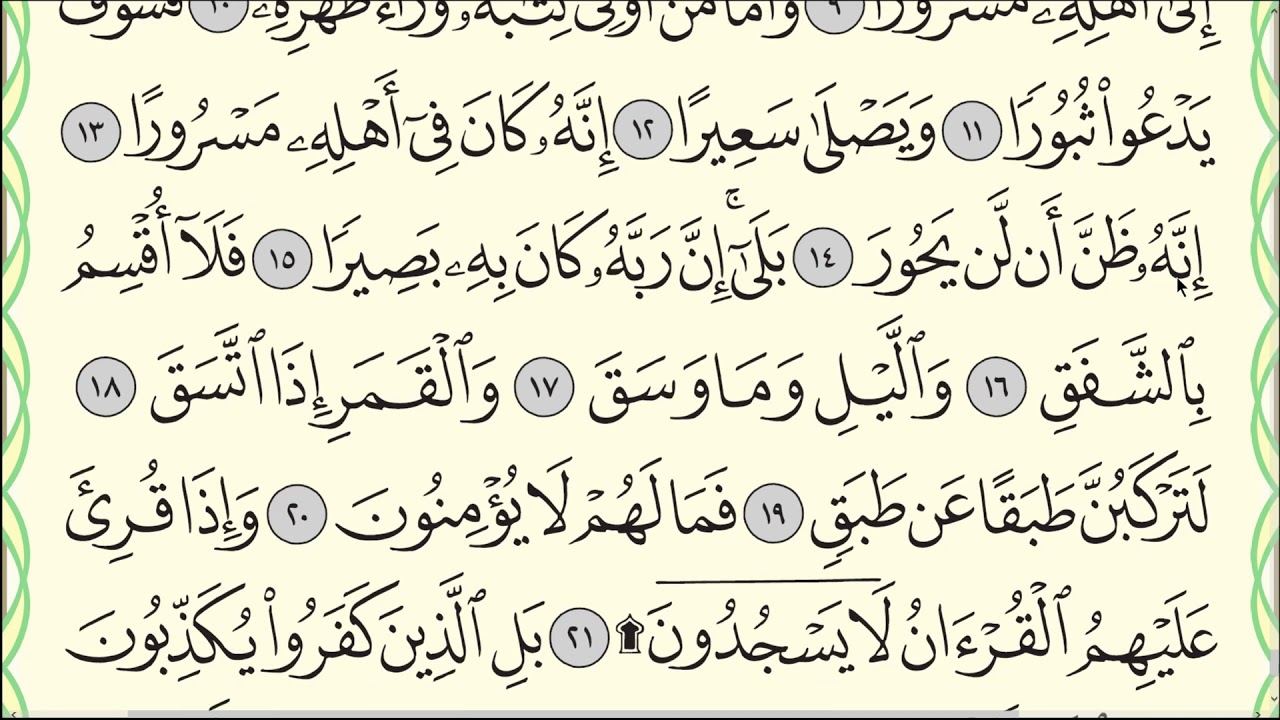 إِلَىٰٓ أَهْلِهِۦ مَسْرُورًا ٩ وَأَمَّا مَنْ أُوتِىَ كِتَٰبَهُۥ وَرَآءَ ظَهْرِهِۦ ١٠ فَسَوْفَ
يَدْعُوا۟ ثُبُورًا ١١ وَيَصْلَىٰ سَعِيرًا ١٢ إِنَّهُۥ كَانَ فِىٓ أَهْلِهِۦ مَسْرُورًا ١٣
إِنَّهُۥ ظَنَّ أَن لَّن يَحُورَ ١٤ بَلَىٰٓ ۚ إِنَّ رَبَّهُۥ كَانَ بِهِۦ بَصِيرًا ١٥ فَلَآ أُقْسِمُ
بِٱلشَّفَقِ ١٦ وَٱلَّيْلِ وَمَا وَسَقَ ١٧ وَٱلْقَمَرِ إِذَا ٱتَّسَقَ ١٨
لَتَرْكَبُنَّ طَبَقًا عَن طَبَقٍ ١٩ فَمَا لَهُمْ لَا يُؤْمِنُونَ ٢٠ وَإِذَا قُرِئَ
عَلَيْهِمُ ٱلْقُرْءَانُ لَا يَسْجُدُونَ ۩ ٢١ بَلِ ٱلَّذِينَ كَفَرُوا۟ يُكَذِّبُونَ